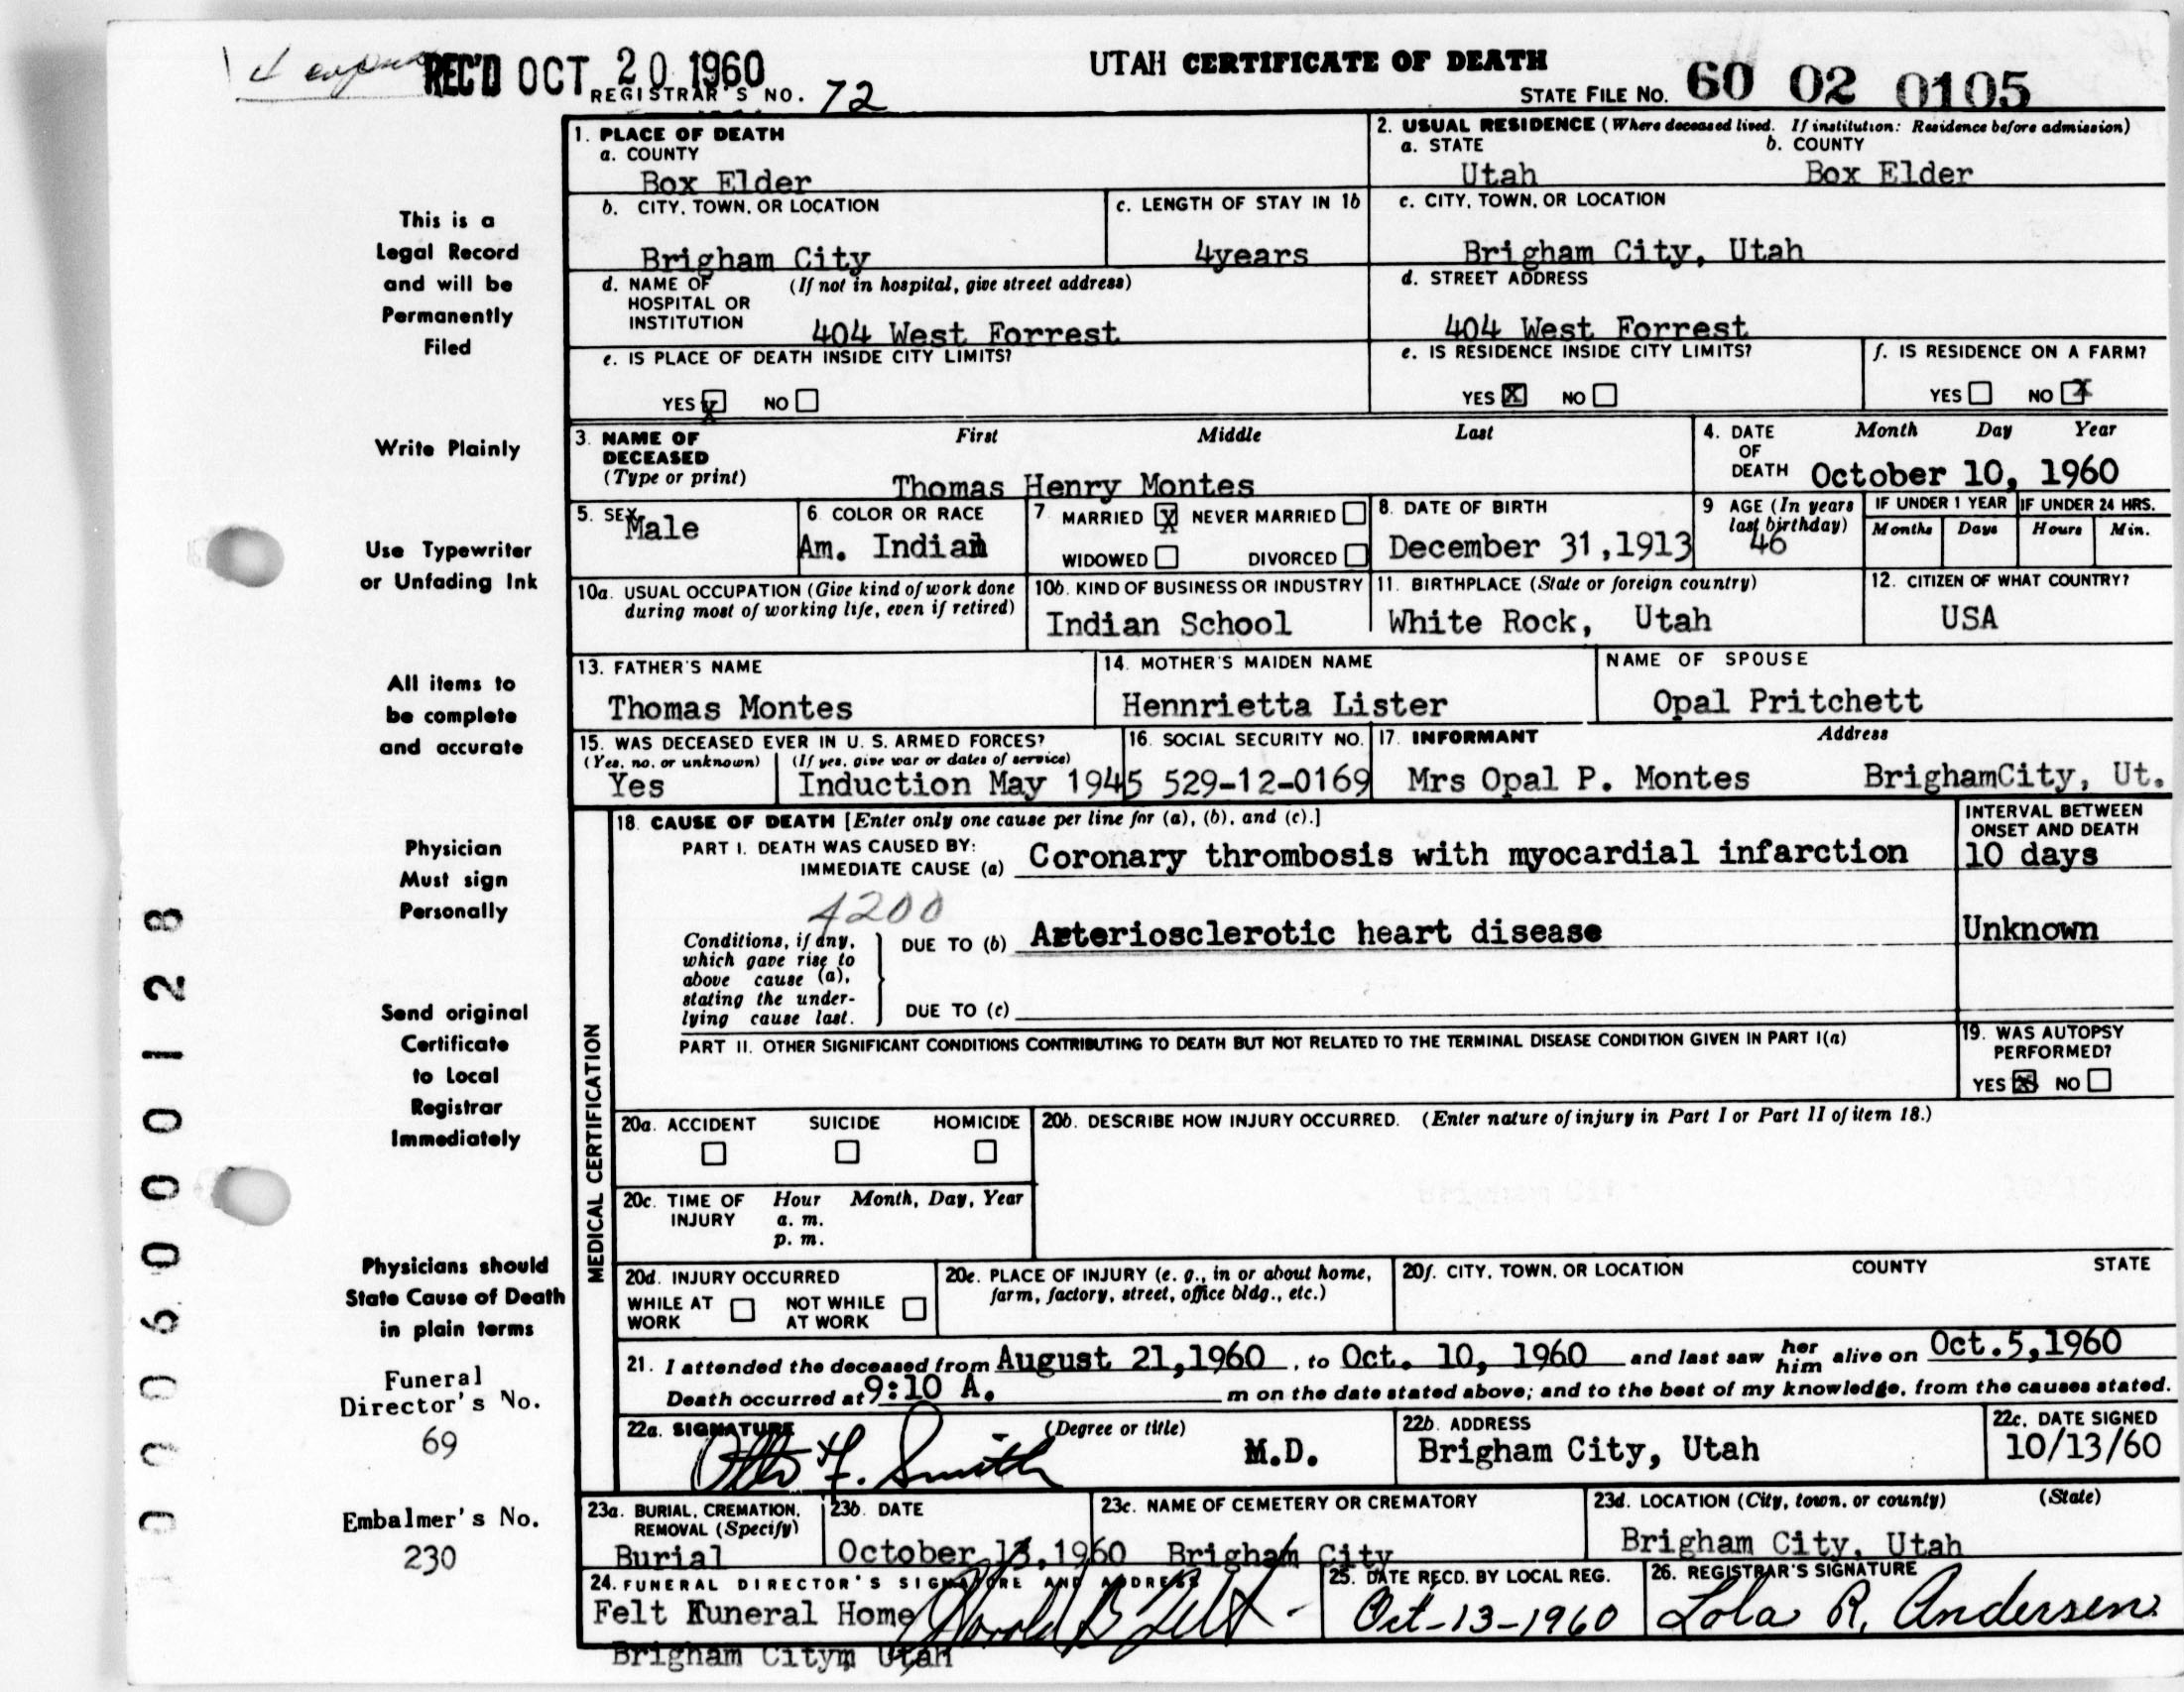 REC'D OCT 20 1960
REGISTRAR'S NO. 72
UTAH CERTIFICATE OF DEATH
STATE FILE NO. 60 02 0105
This is a
Legal Record
and will be
Permanently
Filed
Write Plainly
Use Typewriter
or Unfading Ink
All items to
be complete
and accurate
Physician
Must sign
Personally
Send original
Certificate
to Local
Registrar
Immediately
Physicians should
State Cause of Death
in plain terms
Funeral
Director's No.
69
Embalmer's No.
230
1. PLACE OF DEATH
a. COUNTY
Box Elder
b. CITY, TOWN, OR LOCATION
Brigham City
c. LENGTH OF STAY IN 1b
4years
d. NAME OF (If not in hospital, give street address)
HOSPITAL OR
INSTITUTION 404 West Forrest
e. IS PLACE OF DEATH INSIDE CITY LIMITS?
YES X NO
2. USUAL RESIDENCE (Where deceased lived. If institution: Residence before admission)
a. STATE b. COUNTY
Utah Box Elder
c. CITY, TOWN, OR LOCATION
Brigham City, Utah
d. STREET ADDRESS
404 West Forrest
e. IS RESIDENCE INSIDE CITY LIMITS?
YES X NO
f. IS RESIDENCE ON A FARM?
YES NO X
3. NAME OF DECEASED (Type or print)
First Middle Last
Thomas Henry Montes
4. DATE OF DEATH
Month Day Year
October 10, 1960
5. SEX
Male
6 COLOR OR RACE
Am. Indian
7 MARRIED X NEVER MARRIED
WIDOWED DIVORCED
8. DATE OF BIRTH
December 31,1913
9 AGE (In years
last birthday)
46
IF UNDER 1 YEAR
Months Days
IF UNDER 24 HRS.
Hours Min.
10a. USUAL OCCUPATION (Give kind of work done
during most of working life, even if retired)
10b. KIND OF BUSINESS OR INDUSTRY
Indian School
11. BIRTHPLACE (State or foreign country)
White Rock, Utah
12. CITIZEN OF WHAT COUNTRY?
USA
13. FATHER'S NAME
Thomas Montes
14. MOTHER'S MAIDEN NAME
Hennrietta Lister
NAME OF SPOUSE
Opal Pritchett
15. WAS DECEASED EVER IN U. S. ARMED FORCES?
(Yes, no, or unknown) (If yes, give war or dates of service)
Yes Induction May 1945
16. SOCIAL SECURITY NO.
529-12-0169
17. INFORMANT Address
Mrs Opal P. Montes BrighamCity, Ut.
MEDICAL CERTIFICATION
18. CAUSE OF DEATH [Enter only one cause per line for (a), (b), and (c).]
PART I. DEATH WAS CAUSED BY:
IMMEDIATE CAUSE (a) Coronary thrombosis with myocardial infarction
INTERVAL BETWEEN
ONSET AND DEATH
10 days
4200
Conditions, if any,
which gave rise to
above cause (a),
stating the under-
lying cause last.
DUE TO (b) Arteriosclerotic heart disease
Unknown
DUE TO (c)
PART II. OTHER SIGNIFICANT CONDITIONS CONTRIBUTING TO DEATH BUT NOT RELATED TO THE TERMINAL DISEASE CONDITION GIVEN IN PART I(a)
19. WAS AUTOPSY
PERFORMED?
YES X NO
20a. ACCIDENT SUICIDE HOMICIDE
20b. DESCRIBE HOW INJURY OCCURRED. (Enter nature of injury in Part I or Part II of item 18.)
20c. TIME OF INJURY
Hour Month, Day, Year
a. m.
p. m.
20d. INJURY OCCURRED
WHILE AT WORK
NOT WHILE AT WORK
20e. PLACE OF INJURY (e. g., in or about home,
farm, factory, street, office bldg., etc.)
20f. CITY, TOWN, OR LOCATION COUNTY STATE
21. I attended the deceased from August 21,1960, to Oct. 10, 1960 and last saw her him alive on Oct.5,1960
Death occurred at 9:10 A. m on the date stated above; and to the best of my knowledge, from the causes stated.
22a. SIGNATURE (Degree or title)
Otto F. Smith M.D.
22b. ADDRESS
Brigham City, Utah
22c. DATE SIGNED
10/13/60
23a. BURIAL, CREMATION,
REMOVAL (Specify)
Burial
23b. DATE
October 13,1960
23c. NAME OF CEMETERY OR CREMATORY
Brigham City
23d. LOCATION (City, town, or county) (State)
Brigham City, Utah
24. FUNERAL DIRECTOR'S SIGNATURE AND ADDRESS
Felt Funeral Home Harold B Felt
Brigham Citym Utah
25. DATE RECD. BY LOCAL REG.
Oct-13-1960
26. REGISTRAR'S SIGNATURE
Lola R. Andersen
0006000128